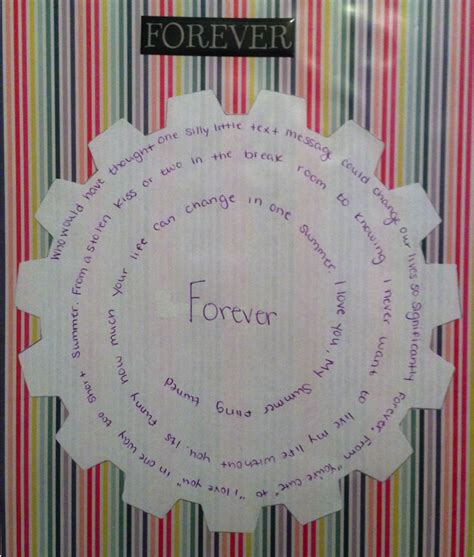 FOREVER
Who would have thought one silly little text message could change our lives so significantly Forever, from "you're cute" to "I love you" in one way too short
Summer. From a stolen kiss or two in the break room to knowing I never want to live my life without you. Its funny
how much your life can change in one summer. I love you, My Summer fling turned
Forever